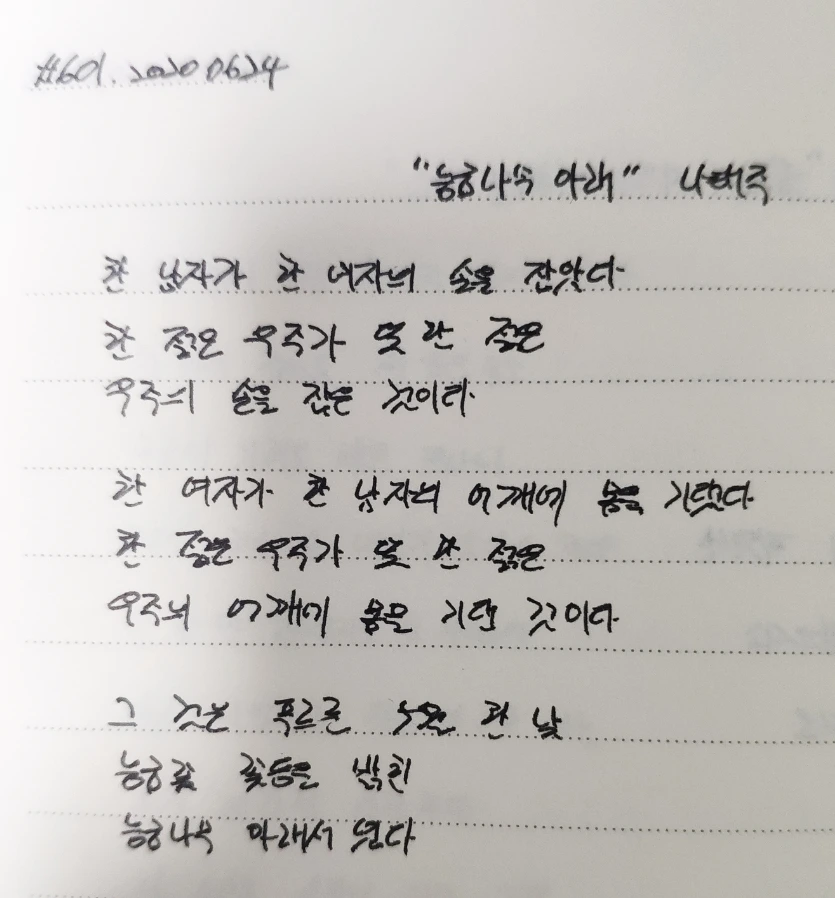 #601. 20200624
"능금나무 아래" 나태주
한 남자가 한 여자의 손을 잡았다
한 젊은 우주가 또 한 젊은
우주의 손을 잡은 것이다
한 여자가 한 남자의 어깨에 몸을 기댔다
한 젊은 우주가 또 한 젊은
우주의 어깨에 몸을 기댄 것이다
그 것은 푸르른 오월 한 낮
능금꽃 꽃등을 밝힌
능금나무 아래서 였다